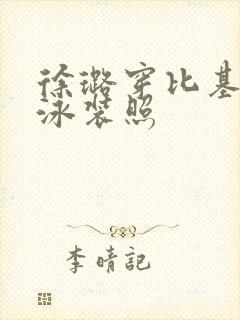 徐璐穿比基
泳装照
李晴記